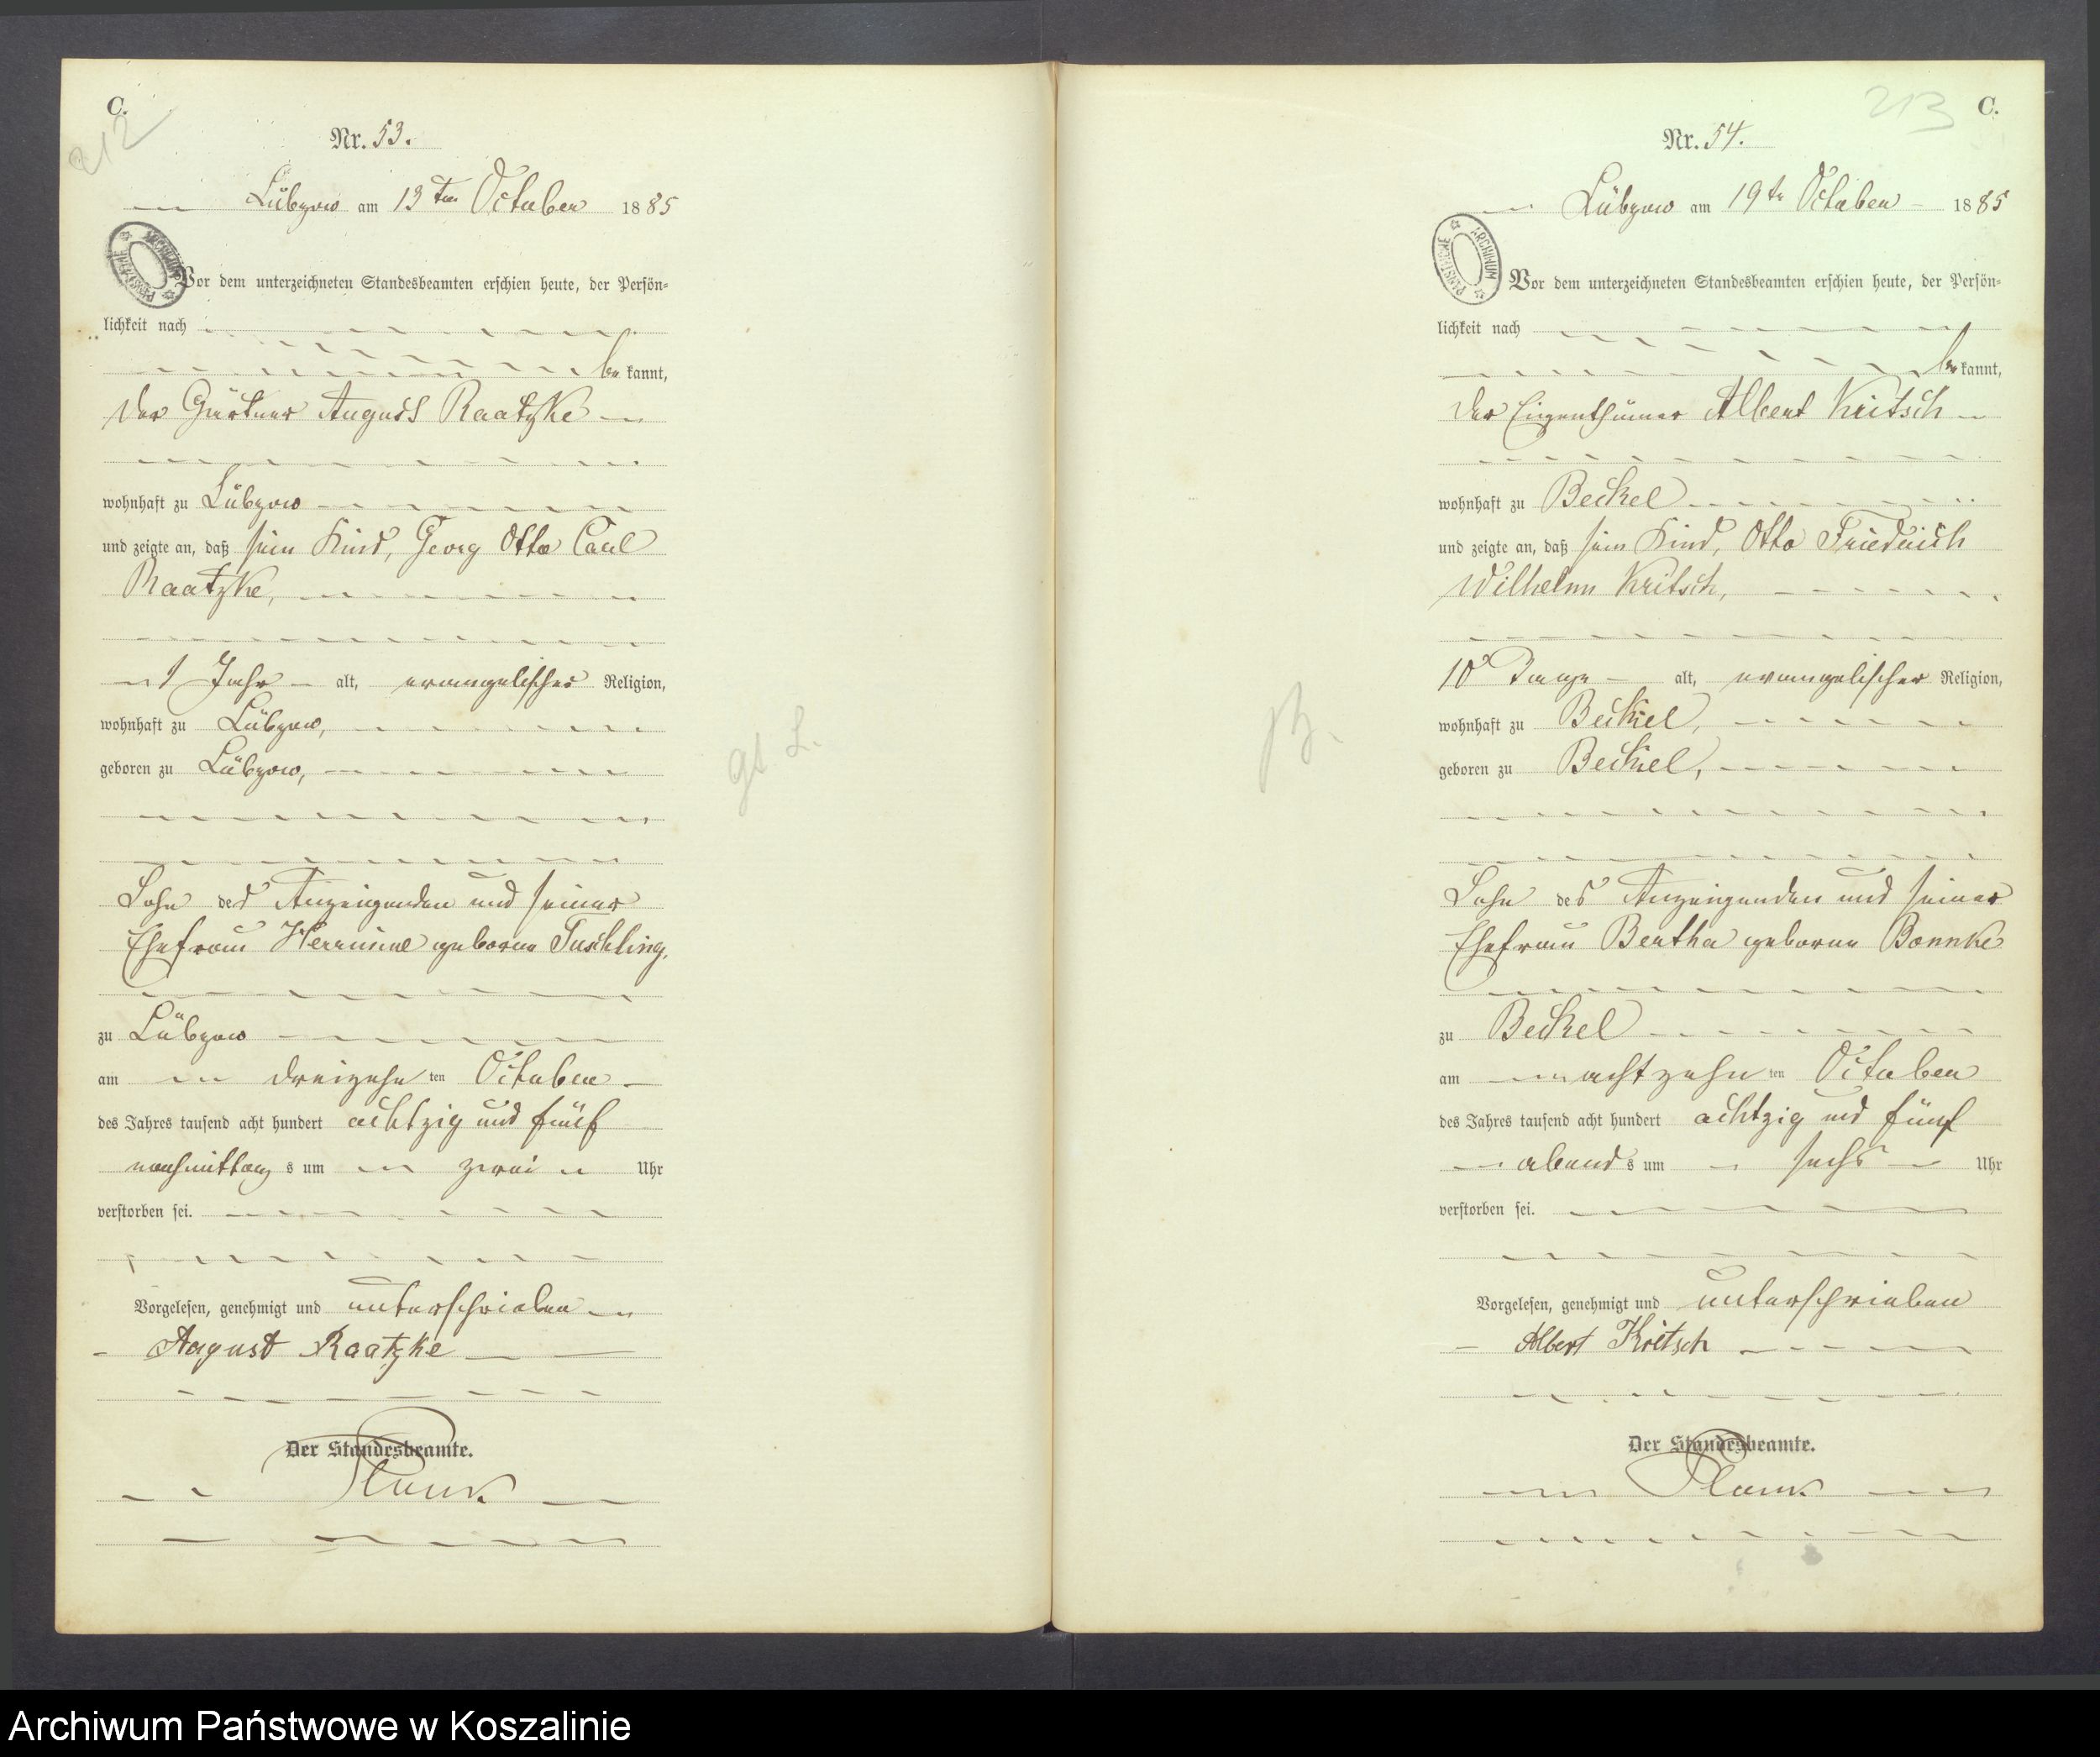 C.
212
Nr. 53.
Lübzow am 13ten October 1885
ARCHIWUM PAŃSTWOWE
Vor dem unterzeichneten Standesbeamten erschien heute, der Persön-
lichkeit nach
be kannt,
der Gärtner August Raatzke
wohnhaft zu Lübzow
und zeigte an, daß sein Kind, Georg Otto Carl
Raatzke,
1 Jahr alt, evangelischer Religion,
wohnhaft zu Lübzow,
geboren zu Lübzow,
Sohn des Anzeigenden und seiner
Ehefrau Hermine geborne Tuschling,
zu Lübzow
am dreizehn ten October
des Jahres tausend acht hundert achtzig und fünf
nachmittag s um zwei Uhr
verstorben sei.
Vorgelesen, genehmigt und unterschrieben
August Raatzke
Der Standesbeamte.
gs. L.
213
C.
Nr. 54.
Lübzow am 19te October 1885
Vor dem unterzeichneten Standesbeamten erschien heute, der Persön-
lichkeit nach
be kannt,
der Eigenthümer Albert Kritsch
wohnhaft zu Beckel
und zeigte an, daß sein Kind, Otto Friedrich
Wilhelm Kritsch,
10 Tage alt, evangelischer Religion,
wohnhaft zu Beckel,
geboren zu Beckel,
Sohn des Anzeigenden und seiner
Ehefrau Bertha geborne Bonnke
zu Beckel
am achtzehn ten October
des Jahres tausend acht hundert achtzig und fünf
abend s um sechs Uhr
verstorben sei.
Vorgelesen, genehmigt und unterschrieben
Albert Kritsch
Der Standesbeamte.
Archiwum Państwowe w Koszalinie